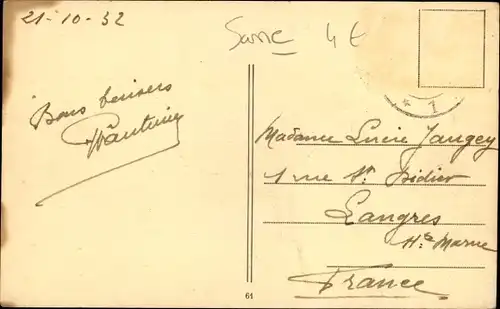 21-10-32
Sarre 4€
Bons baisers
Madame Lucie Jaugey
1 rue St. Didier
Langres
Hte Marne
France
61
* 1